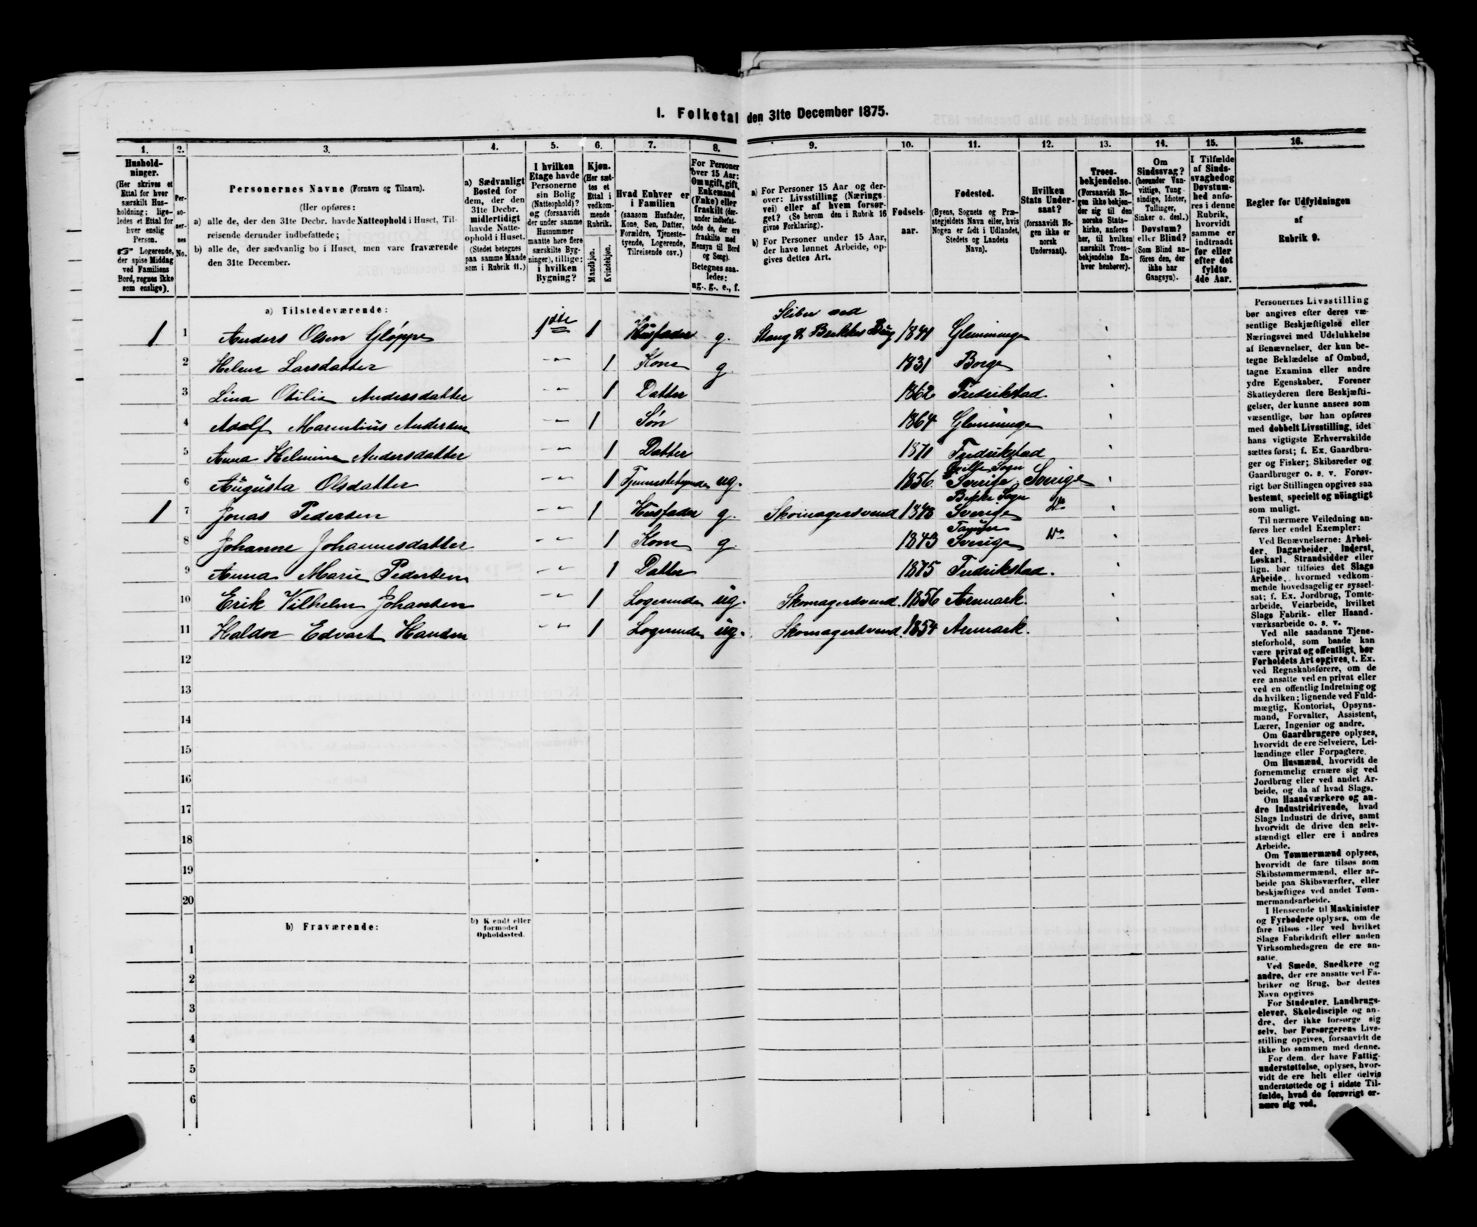 1. Folketal den 31te December 1875.
1. 2. 3. 4. 5. 6. 7. 8. 9. 10. 11. 12. 13. 14. 15. 16.
Hushold-
ninger.
(Her skrives et
Ettal for hver
særskilt Hus-
holdning; lige-
ledes et Ettal for
hver enslig
Person.
Logerende,
der spise Middag
ved Familiens
Bord, regnes ikke
som enslige).
Per-
so-
ner-
nes
No.
Personernes Navne (Fornavn og Tilnavn).
(Her opføres:
a) alle de, der den 31te Decbr. havde Natteophold i Huset, Til-
reisende derunder indbefattede;
b) alle de, der sædvanlig bo i Huset, men vare fraværende
den 31te December.
a) Sædvanligt
Bosted for
dem, der den
31te Decbr.
midlertidigt
havde Natte-
ophold i Huset.
(Stedet betegnes
paa samme Maade
som i Rubrik 11.)
I hvilken
Etage havde
Personerne
sin Bolig
(Natteophold)?
og (forsaavidt
der under samme
Husnummer
maatte høre flere
særskilte Byg-
ninger), tillige:
i hvilken
Bygning?
Kjøn.
(Her sæt-
tes et
Ettal i
vedkom-
mende
Rubrik.
Mandkjøn.
Kvindekjøn.
Hvad Enhver er
i Familien
(saasom Husfader,
Kone, Søn, Datter,
Forældre, Tjeneste-
tyende, Logerende,
Tilreisende osv.)
For Personer
over 15 Aar:
Om ugift, gift,
Enkemand
(Enke) eller
fraskilt (der-
under indbefat-
tede de, der ere
fraskilte med
Hensyn til Bord
og Seng).
Betegnes saa-
ledes:
ug., g., e., f.
a) For Personer 15 Aar og der-
over: Livsstilling (Nærings-
vei) eller af hvem forsør-
get? (Se herom den i Rubrik 16
givne Forklaring).
b) For Personer under 15 Aar,
der have lønnet Arbeide, op-
gives dettes Art.
Fødsels-
aar.
Fødested.
(Byens, Sognets og Præ-
stegjeldets Navn eller, hvis
Nogen er født i Udlandet,
Stedets og Landets
Navn).
Hvilken
Stats Under-
saat?
(forsaavidt No-
gen ikke er
norsk
Undersaat).
Troes-
bekjendelse.
(Forsaavidt No-
gen ikke bekjen-
der sig til den
norske Stats-
kirke, anføres
her, til hvilken
Troes-
bekjendelse En-
hver henhører).
Om
Sindssvag?
(herunder Van-
vittige, Tung-
sindige, Idioter,
Tullinger,
Sinker o. desl.)
Døvstum?
eller Blind?
(Som Blind an-
føres den, der
ikke har
Gangsyn).
I Tilfælde
af Sinds-
svaghed og
Døvstum-
hed anfø-
res i denne
Rubrik,
hvorvidt
samme er
indtraadt
før eller
efter det
fyldte
4de Aar.
Regler for Udfyldningen
af
Rubrik 9.
a) Tilstedeværende:
1 1 Anders Olsen Gløppe 1ste 1 Husfader g. Sliber ved Brug 1841 Glemminge
2 Helene Larsdatter 1 Kone g. 1831 Borge
3 Lina Otilie Andersdatter 1 Datter 1862 Fredrikstad.
4 Adolf Marentius Andersen 1 Søn 1864 Glemminge
5 Anna Helmine Andersdatter 1 Datter 1871 Fredrikstad
6 Augusta Olsdatter 1 Tjenestetyende ug. 1856 Sogn Sverige, Sverige
1 7 Jonas Pedersen 1 Husfader g. Skomagersvend 1848 Sogn Sverige
8 Johanne Johannesdatter 1 Kone g. 1843 Sverige
9 Anna Marie Pedersen 1 Datter 1875 Fredrikstad.
10 Erik Vilhelm Johansen 1 Logerende ug. Skomagersvend 1856 Aremark.
11 Haldor Edvart Hansen 1 Logerende ug. Skomagersvend 1854 Aremark.
12
13
14
15
16
17
18
19
20
b) Fraværende:
b) Kjendt eller
formodet
Opholdssted.
1
2
3
4
5
6
Personernes Livsstilling
bør angives efter deres væ-
sentlige Beskjæftigelse eller
Næringsvei med Udelukkelse
af Benævnelser, der kun be-
tegne Beklædelse af Ombud,
tagne Examina eller andre
ydre Egenskaber. Forener
Skatteyderen flere Beskjæfti-
gelser, der kunne ansees som
væsentlige, bør han opføres
med dobbelt Livsstilling, idet
hans vigtigste Erhvervskilde
sættes først; f. Ex. Gaardbru-
ger og Fisker; Skibsreder og
Gaardbruger o. s. v. Forøv-
rigt bør Stillingen opgives saa
bestemt, specielt og nøiagtigt
som muligt.
Til nærmere Veiledning an-
føres her endel Exempler:
Ved Benævnelserne: Arbei-
der, Dagarbeider, Inderst,
Løskarl, Strandsidder eller
lign. bør tilføies det Slags
Arbeide, hvormed vedkom-
mende hovedsagelig er syssel-
sat; f. Ex. Jordbrug, Tomte-
arbeide, Veiarbeide, hvilket
Slags Fabrik- eller Haand-
værksarbeide o. s. v.
Ved alle saadanne Tjene-
steforhold, som baade kan
være privat og offentligt, bør
Forholdets Art opgives, t. Ex.
ved Regnskabsførere, om de
ere ansatte ved en privat eller
ved en offentlig Indretning og
da hvilken; lignende ved Fuld-
mægtig, Kontorist, Opsyns-
mand, Forvalter, Assistent,
Lærer, Ingeniør og andre.
Om Gaardbrugere oplyses,
hvorvidt de ere Selveiere, Lei-
lændinge eller Forpagtere.
Om Husmænd, hvorvidt de
fornemmelig ernære sig ved
Jordbrug eller ved andet Ar-
beide, og da af hvad Slags.
Om Haandværkere og an-
dre Industridrivende, hvad
Slags Industri de drive, samt
hvorvidt de drive den selv-
stændigt eller ere i andres
Arbeide.
Om Tømmermænd oplyses,
hvorvidt de fare tilsøs som
Skibstømmermænd, eller ar-
beide paa Skibsværfter, eller
beskjæftiges ved andet Tøm-
mermandsarbeide.
I Henseende til Maskinister
og Fyrbødere oplyses, om de
fare tilsøs eller ved hvilket
Slags Fabrikdrift eller anden
Virksomhedsgren de ere an-
satte.
Ved Smede, Snedkere og
andre, der ere ansatte ved Fa-
briker og Brug, bør dettes
Navn opgives
For Studenter, Landbrugs-
elever, Skoledisciple og an-
dre, der ikke forsørge sig
selv, bør Forsørgerens Livs-
stilling opgives, forsaavidt de
ikke bo sammen med denne.
For dem, der have Fattig-
understøttelse, oplyses, hvor-
vidt de ere helt eller delvis
understøttede og i sidste Til-
fælde, hvad de forøvrigt er-
nære sig ved.